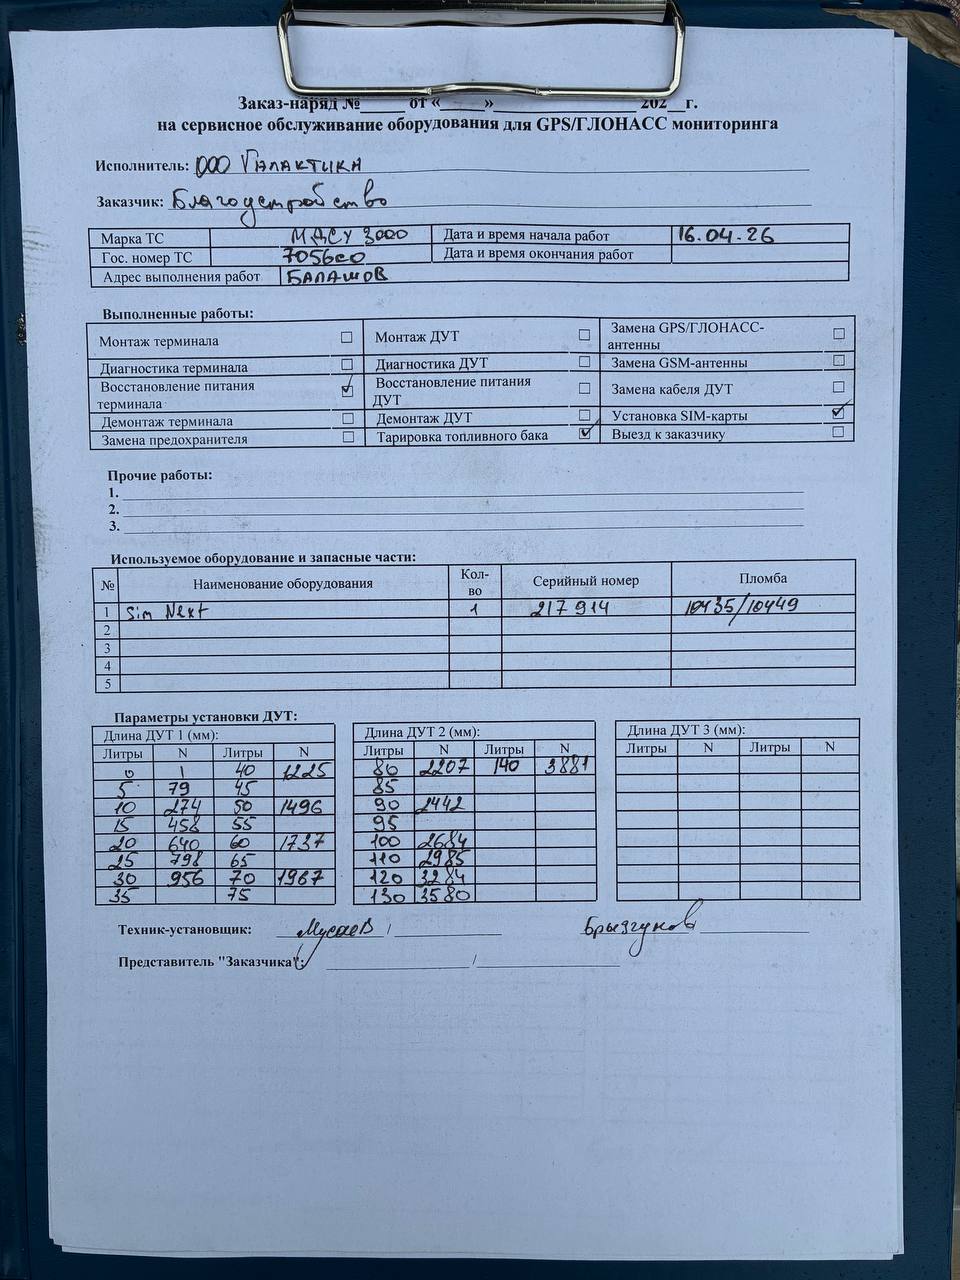 Заказ-наряд №_____ от «_____»________________ 202__г.
на сервисное обслуживание оборудования для GPS/ГЛОНАСС мониторинга
Исполнитель: ООО Галактика
Заказчик: Благоустройство
Марка ТС МДСУ 3000 Дата и время начала работ 16.04.26
Гос. номер ТС 7056со Дата и время окончания работ
Адрес выполнения работ Балашов
Выполненные работы:
Монтаж терминала ☐ Монтаж ДУТ ☐ Замена GPS/ГЛОНАСС-антенны ☐
Диагностика терминала ☐ Диагностика ДУТ ☐ Замена GSM-антенны ☐
Восстановление питания терминала ☑ Восстановление питания ДУТ ☐ Замена кабеля ДУТ ☐
Демонтаж терминала ☐ Демонтаж ДУТ ☐ Установка SIM-карты ☑
Замена предохранителя ☐ Тарировка топливного бака ☑ Выезд к заказчику ☐
Прочие работы:
1.
2.
3.
Используемое оборудование и запасные части:
№ Наименование оборудования Кол-во Серийный номер Пломба
1 Sim Next 1 217914 10435/10449
2
3
4
5
Параметры установки ДУТ:
Длина ДУТ 1 (мм): Длина ДУТ 2 (мм): Длина ДУТ 3 (мм):
Литры N Литры N Литры N Литры N Литры N Литры N
0 1 40 1225 80 2207 140 3881
5 79 45 85
10 274 50 1496 90 2442
15 458 55 95
20 640 60 1737 100 2684
25 798 65 110 2985
30 956 70 1967 120 3284
35 75 130 3580
Техник-установщик: Мусаев / Брызгунов
Представитель "Заказчика": /